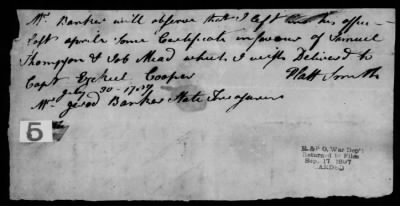 Mr. Banker will observe that I left in his office
last aprile Some Certificate in favour of Samuel
Thompson & Job Mead which I wish Delivered to
Capt Ezekiel Cooper
Platt Smith
July 30 - 1787
Mr. Gerod Banker State Treasurer
5
R. & P. O. War Dep't
Returned to Files
Sep. 17 1897